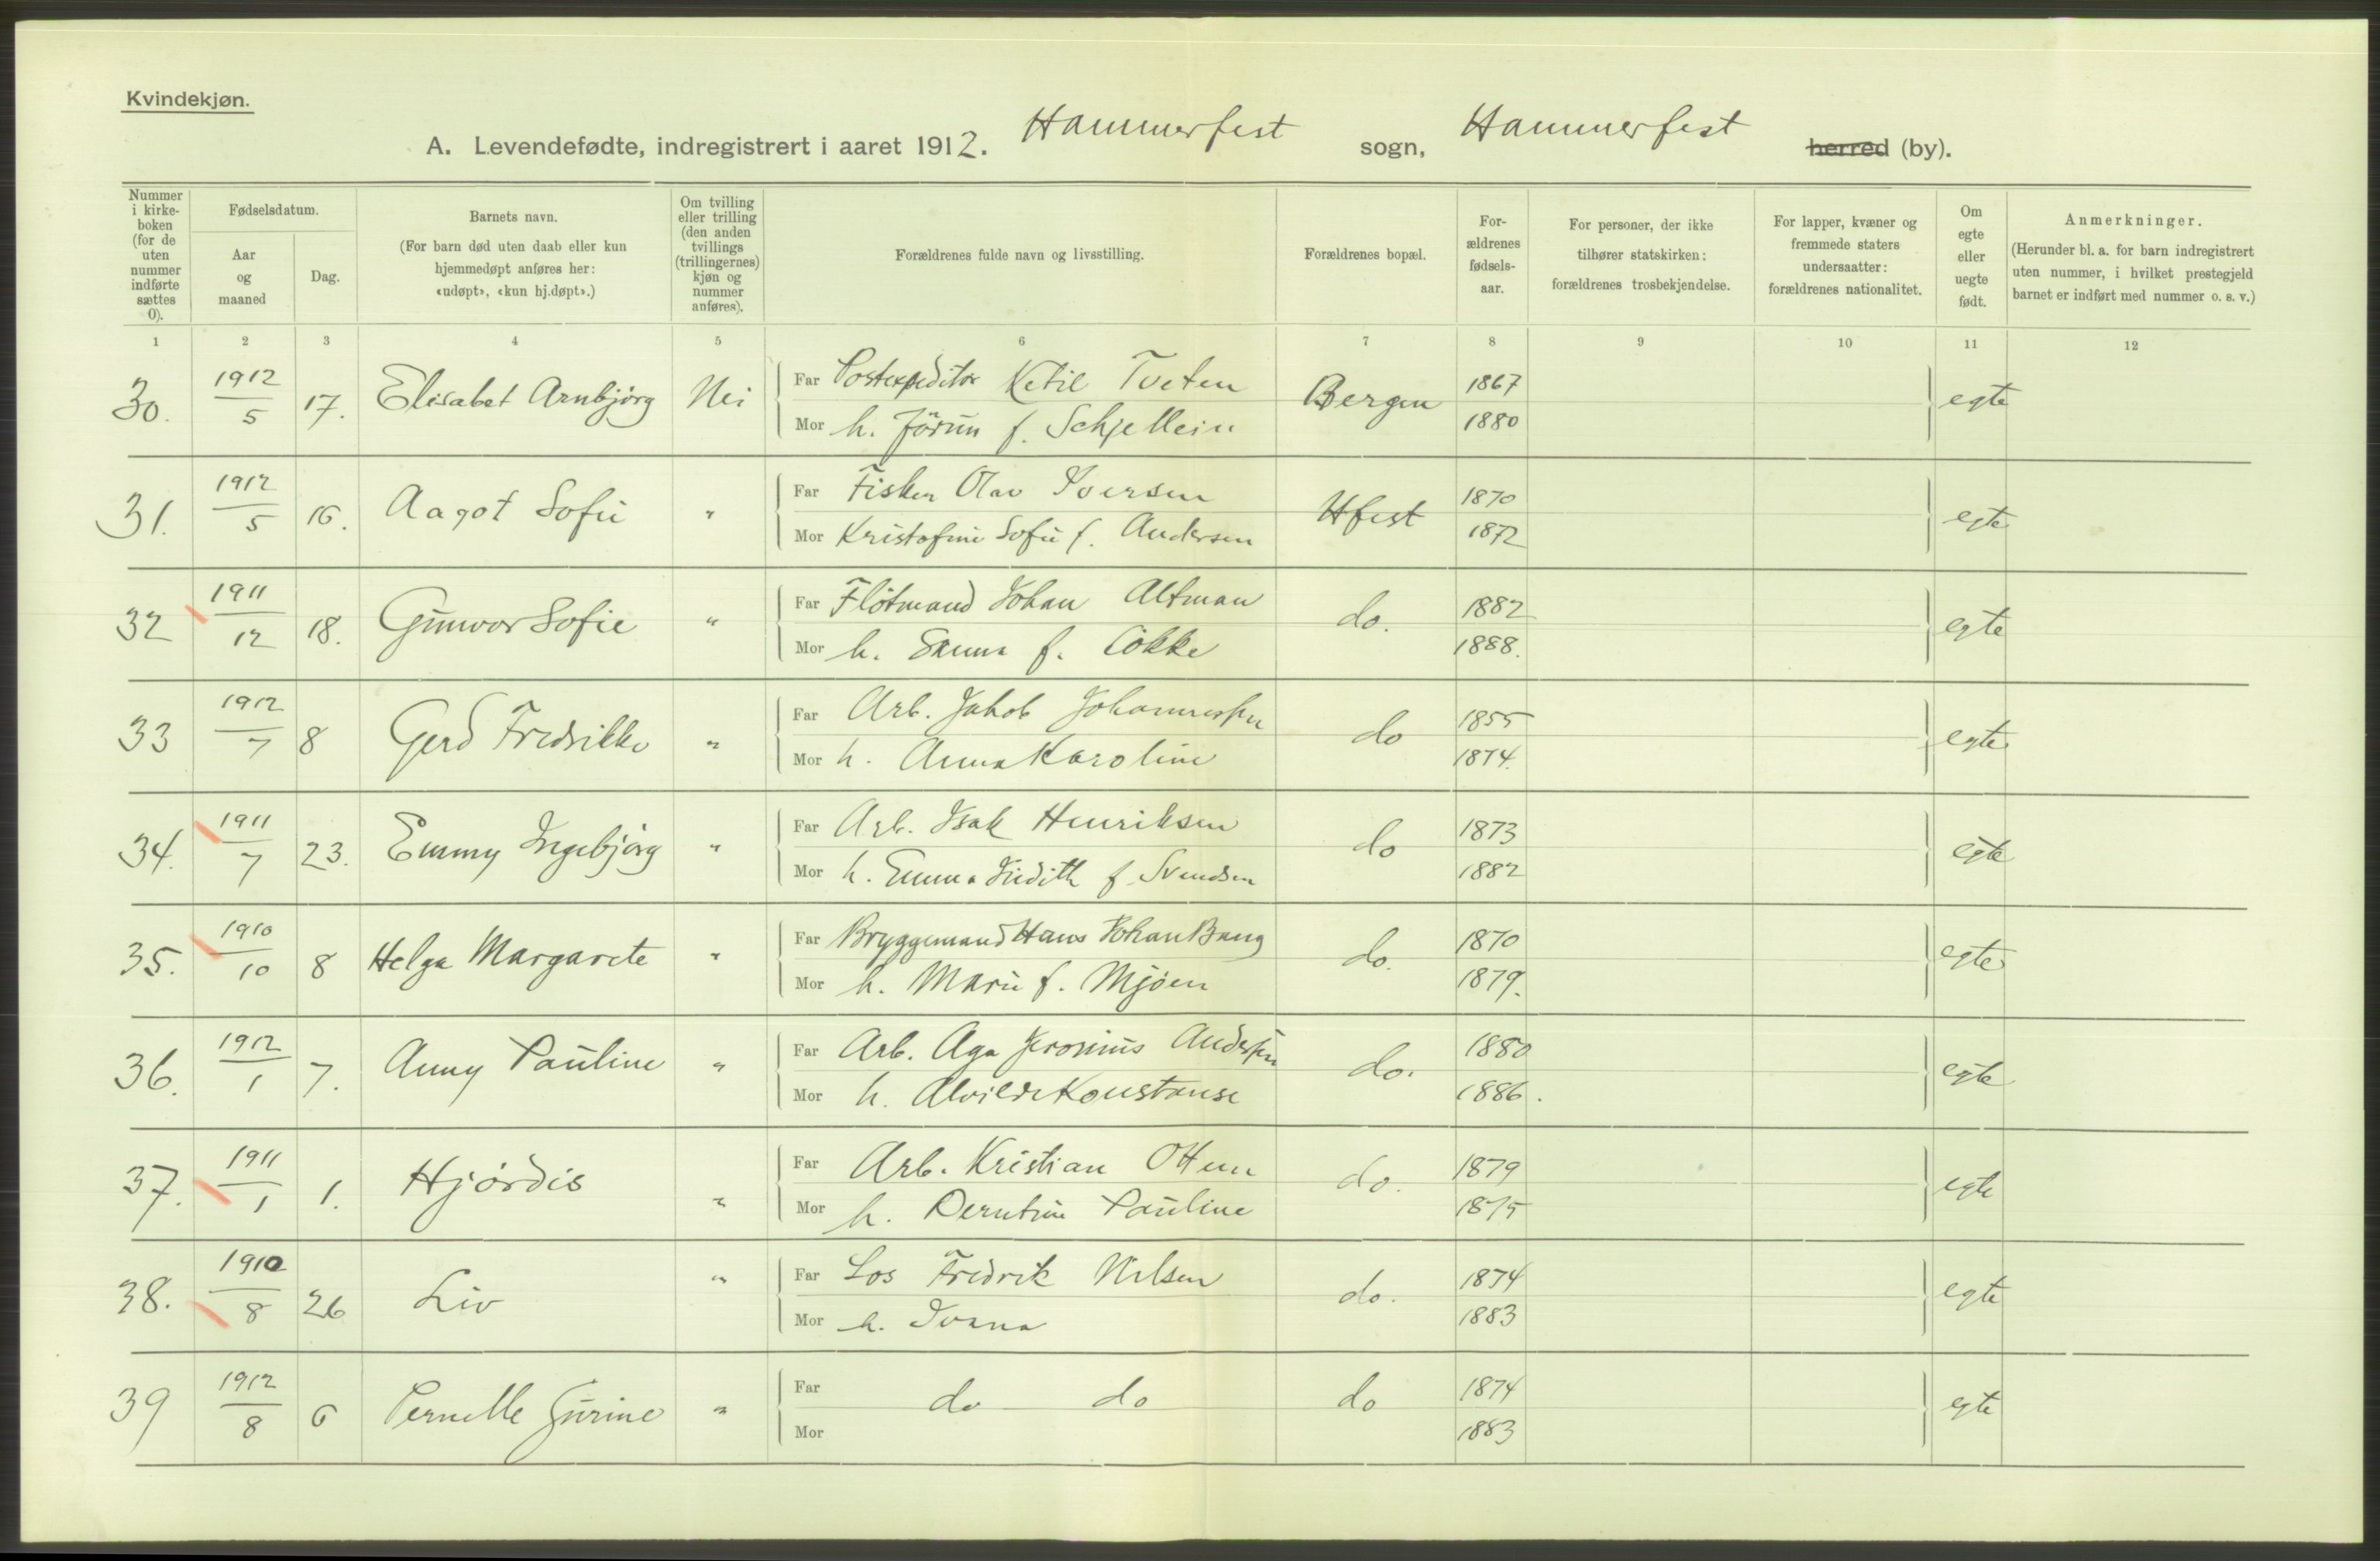 Kvindekjøn.
A. Levendefødte, indregistrert i aaret 1912. Hammerfest sogn, Hammerfest herred (by).
Nummer i kirke-boken (for de uten nummer indførte sættes 0).
Fødselsdatum.
Aar og maaned
Dag.
Barnets navn.
(For barn død uten daab eller kun hjemmedøpt anføres her: «udøpt», «kun hj.døpt».)
Om tvilling eller trilling (den anden tvillings (trillingernes) kjøn og nummer anføres).
Forældrenes fulde navn og livsstilling.
Forældrenes bopæl.
For-ældrenes fødsels-aar.
For personer, der ikke tilhører statskirken: forældrenes trosbekjendelse.
For lapper, kvæner og fremmede staters undersaatter: forældrenes nationalitet.
Om egte eller uegte født.
Anmerkninger.
(Herunder bl. a. for barn indregistrert uten nummer, i hvilket prestegjeld barnet er indført med nummer o. s. v.)
1 2 3 4 5 6 7 8 9 10 11 12
30. 1912/5 17. Elisabet Arnbjørg Nei Far Postexpeditør Ketil Tveten Bergen 1867 egte
Mor h. Jörun f. Schjellein 1880
31. 1912/5 16. Aagot Sofie " Far Fisker Olav Iversen Hfest 1870 egte
Mor Kristofine Sofie f. Andersen 1872
32 1911/12 18. Gunvor Sofie " Far Fløtmand Johan Altman do. 1882 egte
Mor h. Sanna f.Løkke 1888.
33 1912/7 8 Gerd Fredrikke " Far Arb. Jakob Johannessen do 1855 egte
Mor h. Anna Karoline 1874.
34. 1911/7 23. Emmy Ingebjørg " Far Arb. Isak Henriksen do 1873 egte
Mor h. Emma Judith f. Svendsen 1882
35. 1910/10 8 Helga Margarete " Far Bryggemand Hans Johan Bang do. 1870 egte
Mor h. Marie f. Mjöen 1879.
36. 1912/1 7. Anny Pauline " Far Arb. Aga Jeronimus Andersen do. 1880 egte
Mor h. Alvilde Konstanse 1886.
37. 1911/1 1. Hjørdis " Far Arb. Kristian Ottem do. 1879 egte
Mor h. Berntine Pauline 1875
38. 1910/8 26 Liv " Far Los Fredrik Nilsen do. 1874 egte
Mor h. Ivana 1883
39 1912/8 6 Pernelle Gurine " Far do do do 1874 egte
Mor 1883